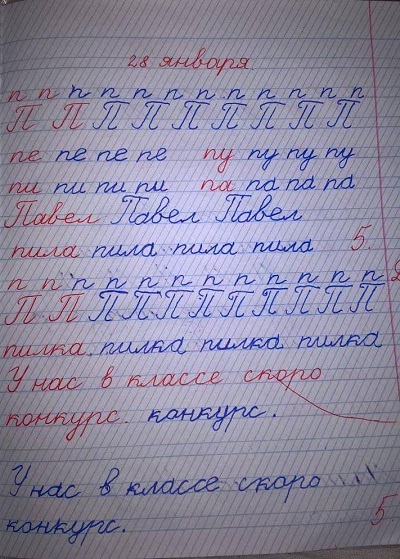 28 января
п п п п п п п п п п п п
П П П П П П П П П
пе пе пе пе пу пу пу пу
пи пи пи пи па па па па
Павел Павел Павел
пила пила пила пила 5.
п п п п п п п п п п п п
П П П П П П П П П П
пилка пилка пилка пилка
У нас в классе скоро
конкурс. конкурс.
У нас в классе скоро
конкурс.
5